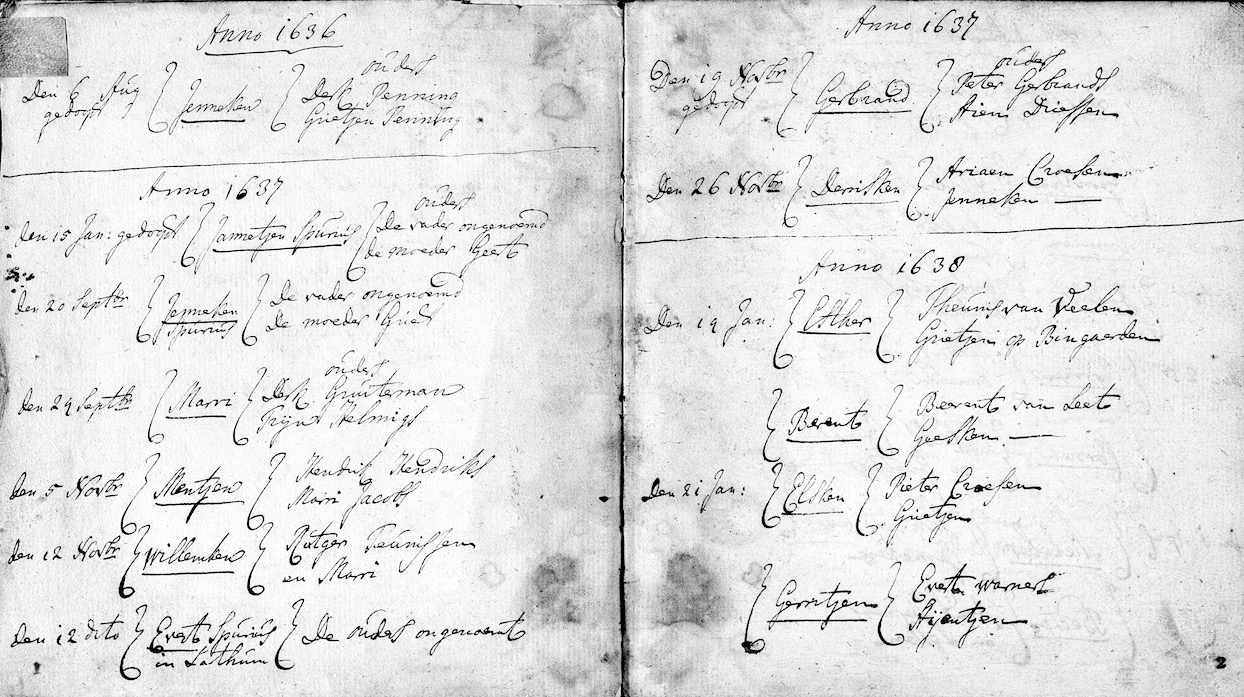 Anno 1636
ouders
Den 6 Aug Jenneken Derk Penning
gedoopt Grietjen Penning
Anno 1637
ouders
den 15 Jan: gedoopt Jannetjen Spurius De vader ongenoemd
de moeder Geert
den 20 Septbr Jenneken De vader ongenoemd
Spurius De moeder Griet
ouders
den 29 Septbr Marri Derk Gruiterman
Trijnt Helmigs
den 5 Novbr Mentjen Hendrik Hendriks
Marri Jacobs
den 12 Novbr Willemken Rutger Teunissen
en Marri
den 12 dito Evert Spurius De ouders ongenoemt
in Lathum
1
Anno 1637
ouders
Den 19 Novbr Gerbrand Peter Gerbrands
gedoopt Driessen
Den 26 Novbr Derrisken Ariaen Croesen
Jenneken —
Anno 1638
Den 19 Jan: Esther Theunis van Veelen
Grietjen op Bingaerden
Berent Beerent van Leet
Geesken —
Den 21 Jan: Elsken Pieter Croesen
Grietjen
Gerritjen Evert Warners
Aijentjen
2